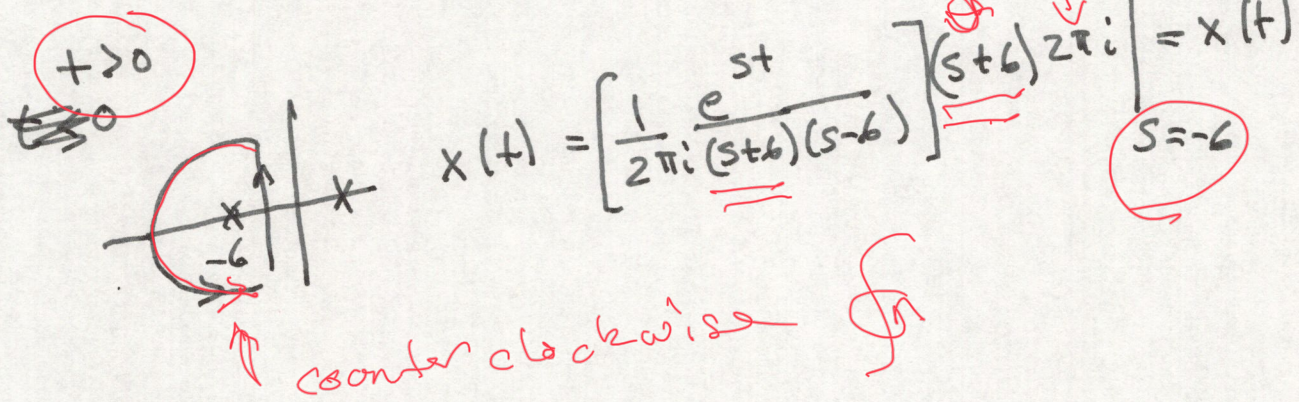 t>0
x(t) = [ 1/2πi e^st/(s+6)(s-6) ] (s+6) 2πi | s=-6 = x(t)
-6
counter clockwise ∮